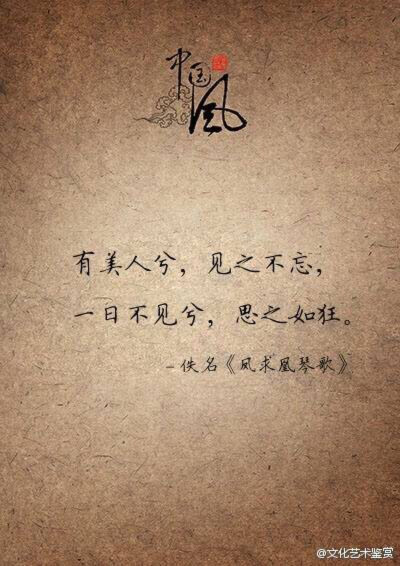 中国风
有美人兮，见之不忘，
一日不见兮，思之如狂。
– 佚名《凤求凰琴歌》
@文化艺术鉴赏